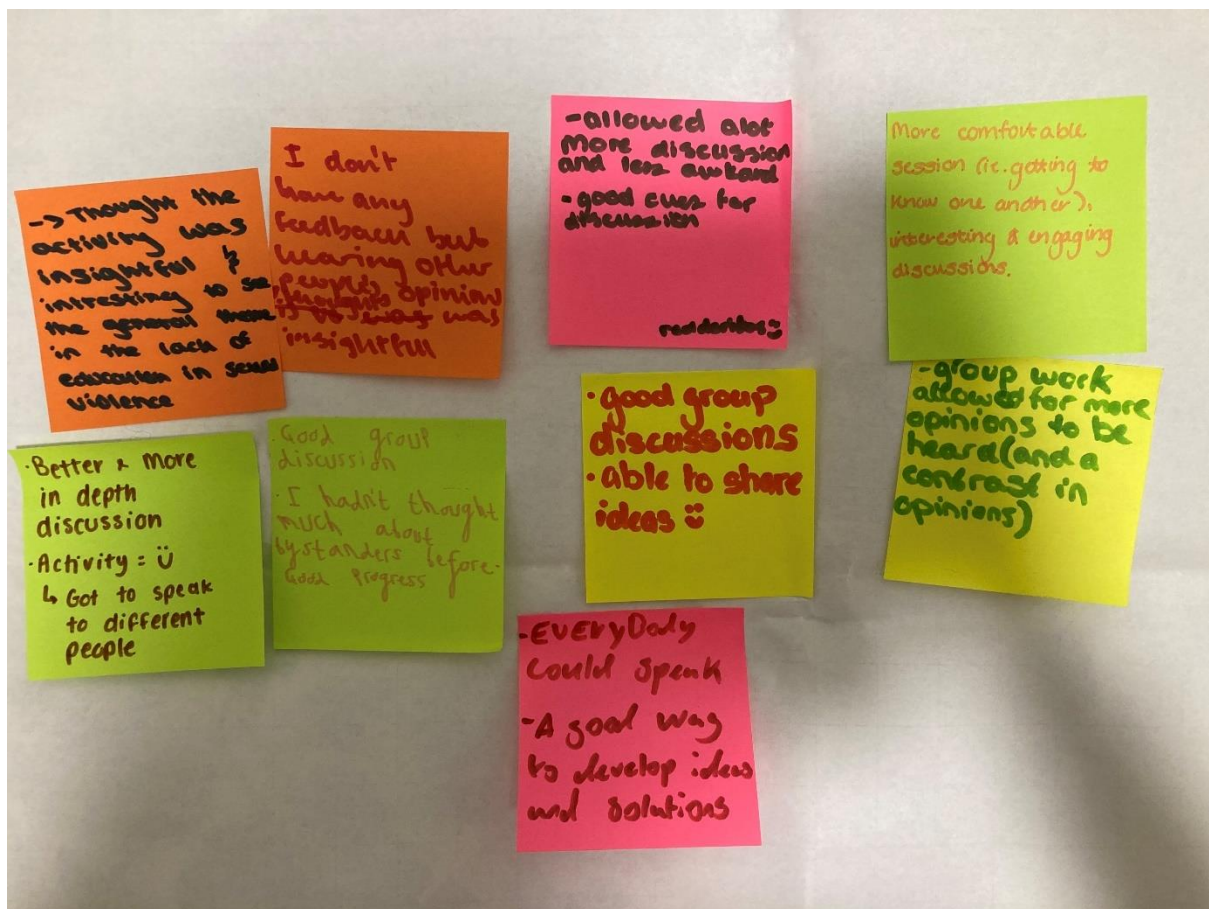 -> Thought the
activity was
insightful &
intresting to see
the general theme
in the lack of
education in sexual
violence
I don't
have any
feedback but
hearing other
people's opinion
thoughts
is to was was
insightful
-allowed alot
more discussion
and less awkard
-good cues for
discussion
More comfortable
session (ie. getting to
know one another).
interesting & engaging
discussions.
·Better & More
in depth
discussion
·Activity = ü
↳ Got to speak
to different
people
·Good group
discussion
·I hadn't thought
much about
bystanders before.
Good Progress
·good group
discussions
·able to share
ideas
-group work
allowed for more
opinions to be
heard (and a
contrast in
opinions)
-EVERyBody
could speak
-A good way
to develop ideas
and solutions